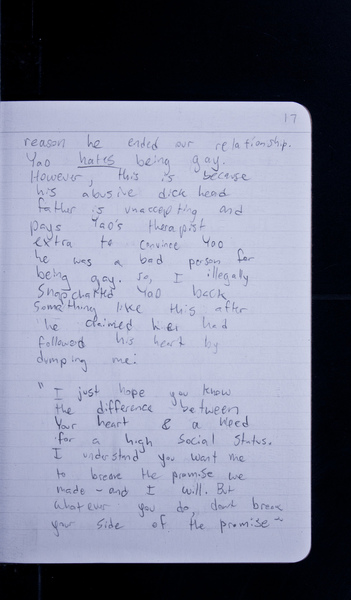 17
reason he ended our relationship.
Yao hates being gay.
However, this is because
his abusive dick head
father is unaccepting and
pays Yao's therapist
extra to convince Yao
he was a bad person for
being gay. So, I illegally
Snapchatted Yao back
something like this after
he claimed he had
followed his heart by
dumping me:
"I just hope you know
the difference between
your heart & a need
for a high social status.
I understand you want me
to breake the promise we
made - and I will. But
whatever you do, don't break
your side of the promise"